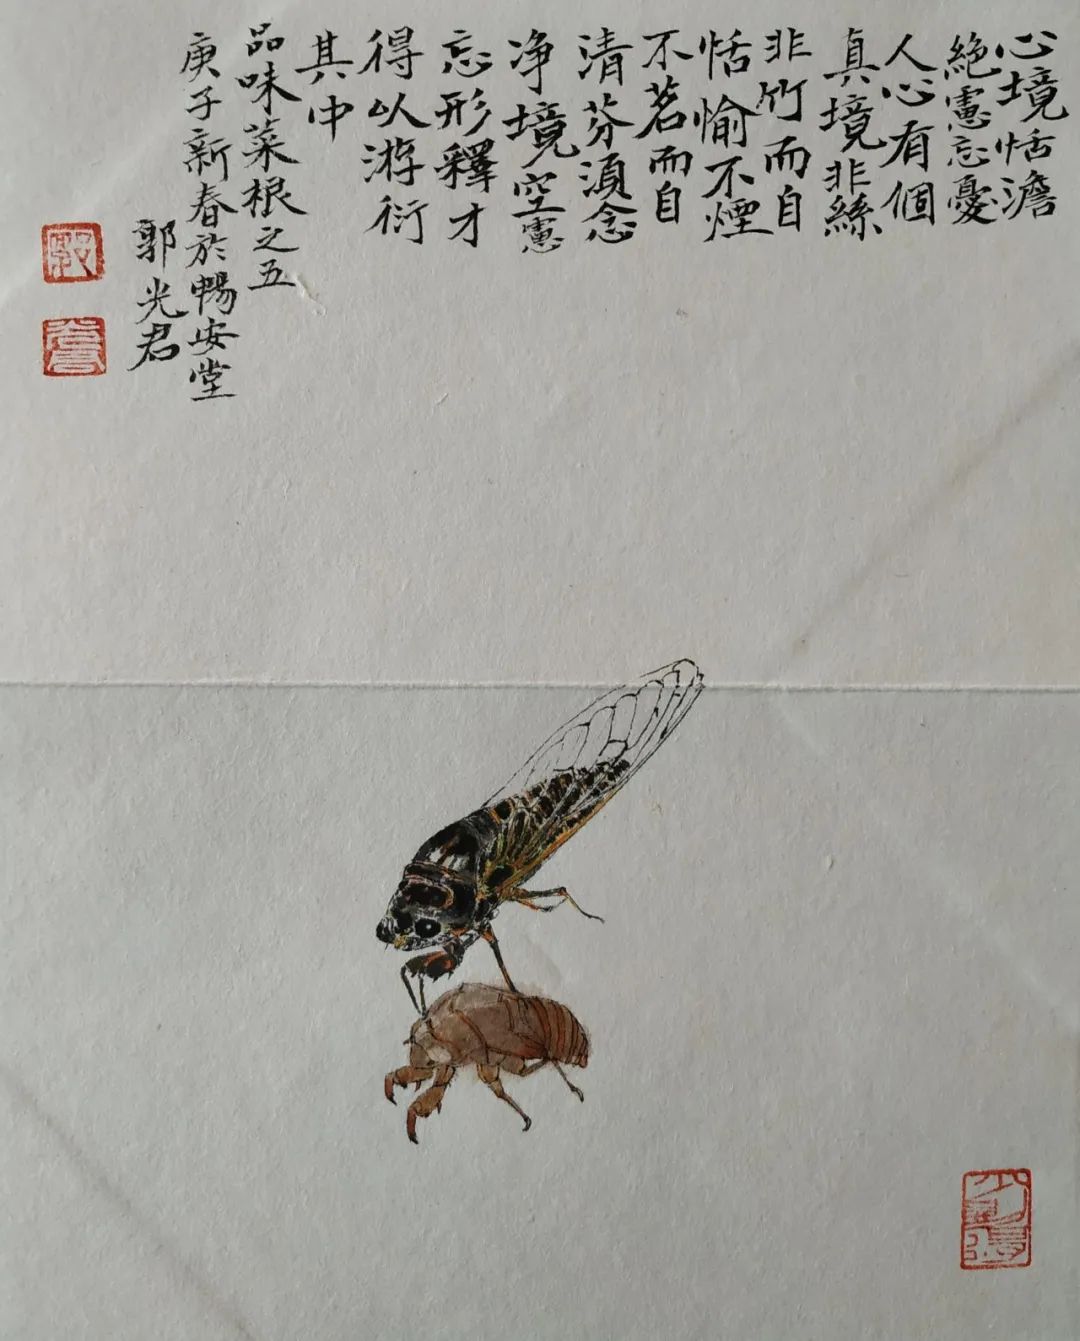 心境恬澹
絕慮忘憂
人心有個
真境非絲
非竹而自
恬愉不煙
不茗而自
清芬須念
净境空慮
忘形釋才
得以游衍
其中
品味菜根之五
庚子新春於暢安堂
郭光君